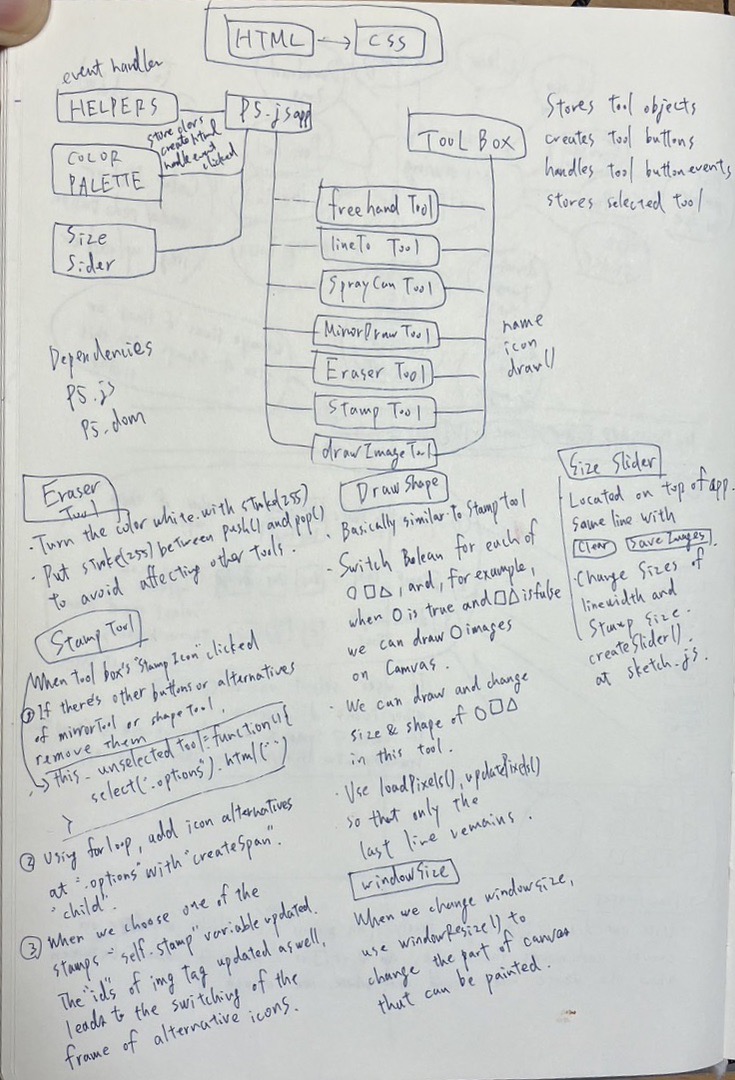 HTML → CSS
event handler
HELPERS
P5.js app
store colors
create html
handle event
clicked
COLOR
PALETTE
Size
Sider
TOOL BOX
Stores tool objects
creates tool buttons
handles tool button events
stores selected tool
freehand Tool
lineTo Tool
SprayCan Tool
MirrorDraw Tool
Eraser Tool
Stamp Tool
drawImageTool
name
icon
draw()
Dependencies
P5.js
P5.dom
Eraser
Tool
· Turn the color white with stroke(255)
· Put stroke(255) between push() and pop()
to avoid affecting other tools.
Stamp Tool
When tool box's "stamp Icon" clicked
① If there's other buttons or alternatives
of mirrorTool or shape tool
remove them
→ this.unselected tool = function(){
select(".options").html("")
}
② Using for loop, add icon alternatives
at ".options" with "createSpan".
"child".
③ When we choose one of the
stamps = "self.stamp" variable updated.
The "id"s of img tag updated as well,
leads to the switching of the
frame of alternative icons.
Draw Shape
· Basically similar to Stamp tool
· Switch Bolean for each of
○□△, and, for example,
when ○ is true and □△ is false
we can draw ○ images
on Canvas.
· We can draw and change
size & shape of ○□△
in this tool.
· Use loadPixels(), updatePixels()
so that only the
last line remains.
windowSize
When we change window size,
use windowResize() to
change the part of canvas
that can be painted.
Size Slider
· Located on top of app.
same line with
Clear Save Images.
· Change sizes of
linewidth and
Stamp size.
createSlider()
at sketch.js.